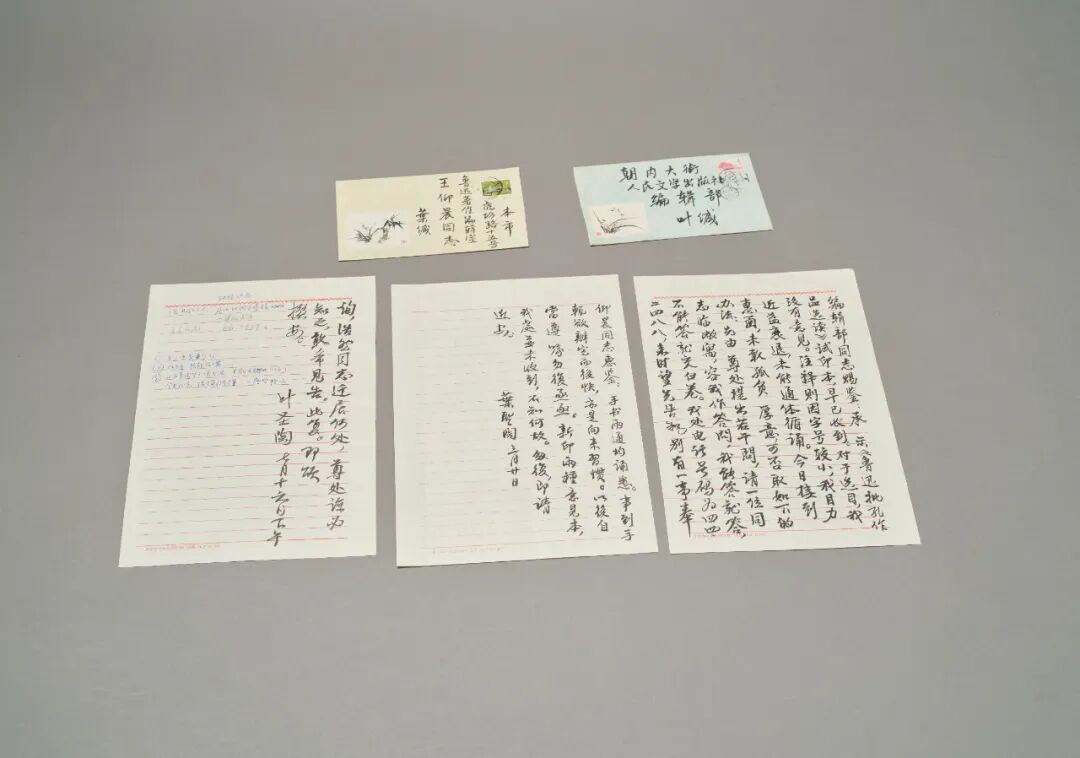 本市
虎坊路十五号
鲁迅著作编辑室
王仰晨同志
葉缄
朝内大街
人民文学出版社
编辑部
叶缄
编辑部同志赐鉴：承 示《鲁迅批孔作
品选读》试印本，早已收到，对于选目，我
没有意见。注释则因字号较小，我目力
近益衰退，未能通体循诵。今日接到
惠函，未敢孤负 厚意，可否取如下的
办法：由 尊处提出若干问，请一位同
志临敝寓，容我作答问，我能答就答，
不能答就交白卷。我处电话号码为四四
二四八八，来时望先告知。别有一事奉
询，浩然同志迁居何处，尊处谅必
知之，敢希见告。此复。即颂
撰安。
叶圣陶 七月十六日下午
仰晨同志惠鉴：手书两通均诵悉。事到手
輒欲辦完而後快，亦是向来習慣。以後自
當遵 嘱勿復亟亟。新印兩種意見本，
我處並未收到，不知何故。匆復，即請
近安。
葉聖陶 三月廿日